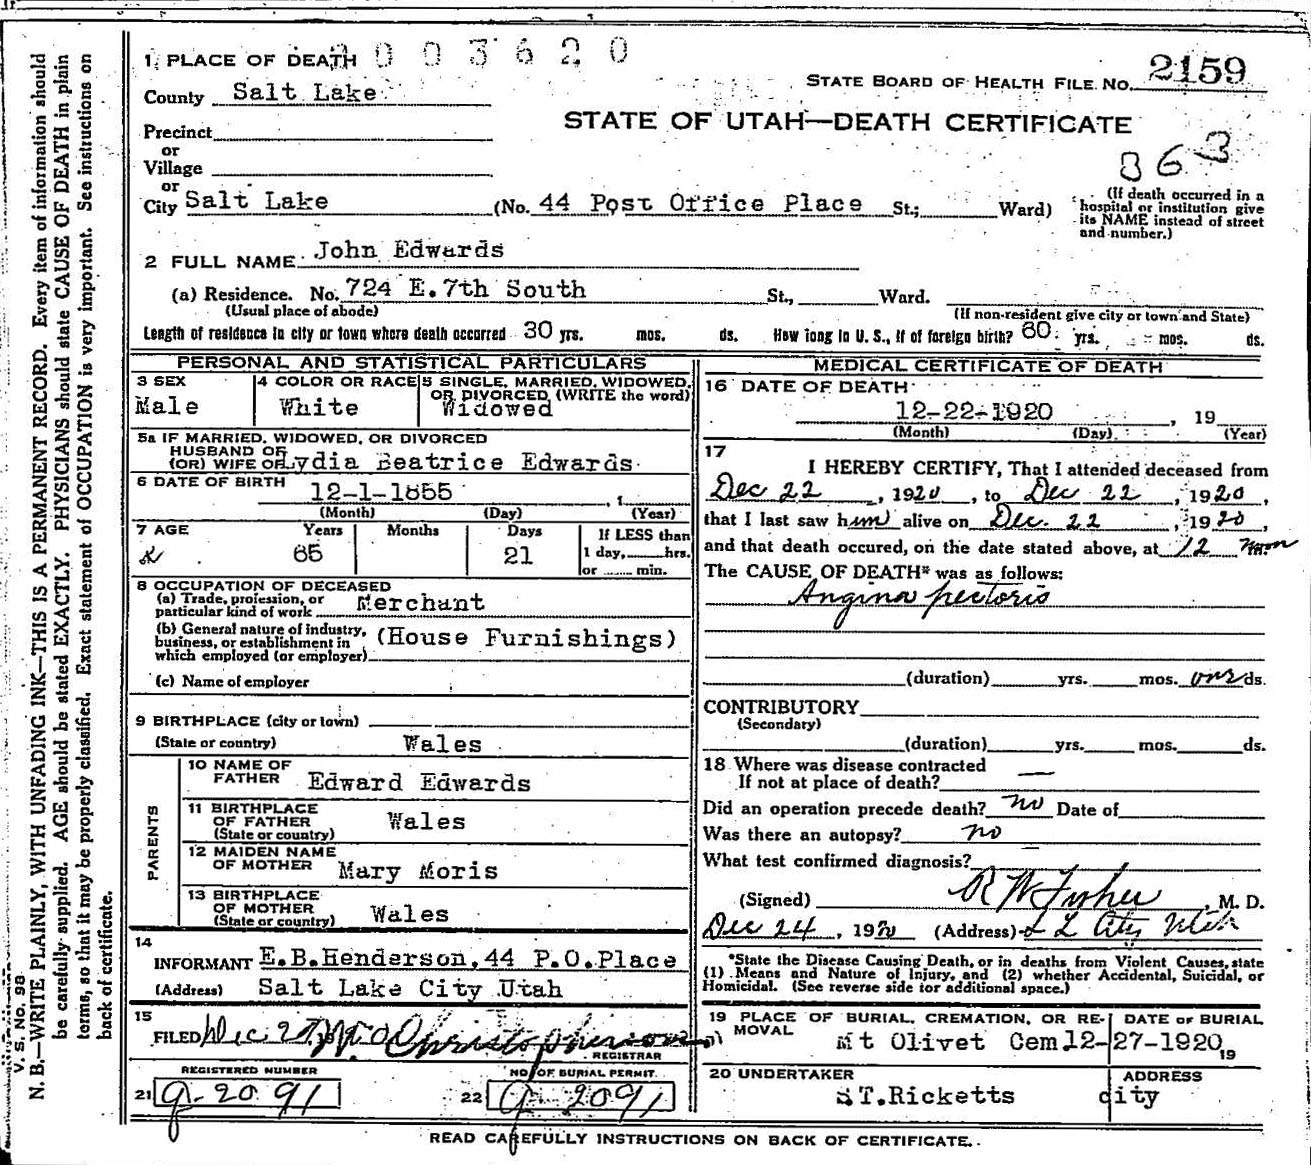 0003620
1 PLACE OF DEATH
STATE BOARD OF HEALTH FILE No. 2159
County Salt Lake
STATE OF UTAH—DEATH CERTIFICATE
Precinct
or
Village
or
863
City Salt Lake (No. 44 Post Office Place St.; Ward)
(If death occurred in a hospital or institution give its NAME instead of street and number.)
2 FULL NAME John Edwards
(a) Residence. No. 724 E. 7th South St., Ward.
(Usual place of abode) (If non-resident give city or town and State)
Length of residence in city or town where death occurred 30 yrs. mos. ds. How long in U. S., if of foreign birth? 60 yrs. mos. ds.
PERSONAL AND STATISTICAL PARTICULARS
3 SEX
Male
4 COLOR OR RACE
White
5 SINGLE, MARRIED, WIDOWED, OR DIVORCED (WRITE the word)
Widowed
5a IF MARRIED, WIDOWED, OR DIVORCED
HUSBAND OF
(OR) WIFE OF Lydia Beatrice Edwards
6 DATE OF BIRTH 12-1-1855 , 1
(Month) (Day) (Year)
7 AGE Years Months Days If LESS than
65 21 1 day, hrs.
or min.
8 OCCUPATION OF DECEASED
(a) Trade, profession, or
particular kind of work Merchant
(b) General nature of industry,
business, or establishment in (House Furnishings)
which employed (or employer)
(c) Name of employer
9 BIRTHPLACE (city or town)
(State or country) Wales
PARENTS
10 NAME OF
FATHER Edward Edwards
11 BIRTHPLACE
OF FATHER Wales
(State or country)
12 MAIDEN NAME
OF MOTHER Mary Moris
13 BIRTHPLACE
OF MOTHER Wales
(State or country)
14
INFORMANT E.B.Henderson, 44 P.O.Place
(Address) Salt Lake City Utah
15
FILED Dec Christopherson
REGISTRAR
REGISTERED NUMBER NO. OF BURIAL PERMIT
21 G-2091 22 G-2091
MEDICAL CERTIFICATE OF DEATH
16 DATE OF DEATH
12-22-1920 , 19
(Month) (Day) (Year)
17
I HEREBY CERTIFY, That I attended deceased from
Dec 22 , 1920 , to Dec 22 , 1920 ,
that I last saw him alive on Dec. 22 , 1920 ,
and that death occured, on the date stated above, at 12 noon m.
The CAUSE OF DEATH* was as follows:
Angina pectoris
(duration) yrs. mos. one ds.
CONTRIBUTORY
(Secondary)
(duration) yrs. mos. ds.
18 Where was disease contracted
If not at place of death? —
Did an operation precede death? no Date of
Was there an autopsy? no
What test confirmed diagnosis?
(Signed) R W Fisher , M. D.
Dec 24 , 1920 (Address) S L City Utah
*State the Disease Causing Death, or in deaths from Violent Causes, state
(1) Means and Nature of Injury, and (2) whether Accidental, Suicidal, or
Homicidal. (See reverse side for additional space.)
19 PLACE OF BURIAL, CREMATION, OR RE-
MOVAL
Mt Olivet Cem
DATE OF BURIAL
12-27-1920 19
20 UNDERTAKER
S T.Ricketts
ADDRESS
city
READ CAREFULLY INSTRUCTIONS ON BACK OF CERTIFICATE.
V. S. No. 98
N. B.—WRITE PLAINLY, WITH UNFADING INK—THIS IS A PERMANENT RECORD. Every item of information should
be carefully supplied. AGE should be stated EXACTLY. PHYSICIANS should state CAUSE OF DEATH in plain
terms, so that it may be properly classified. Exact statement of OCCUPATION is very important. See instructions on
back of certificate.